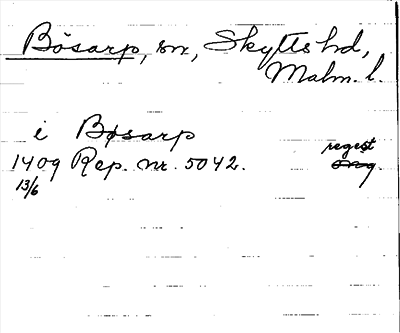 Bösarp, sn, Skytts hd,
Malm. l.
i Bøsarp
1409 Rep. nr. 5042. regest
13/6